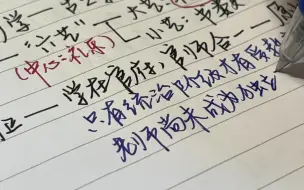 学一
六艺一
小艺:书数
(中心:礼乐)
一学在官府,官师合一一
只有统治阶级才有受教
老师尚未成为独立